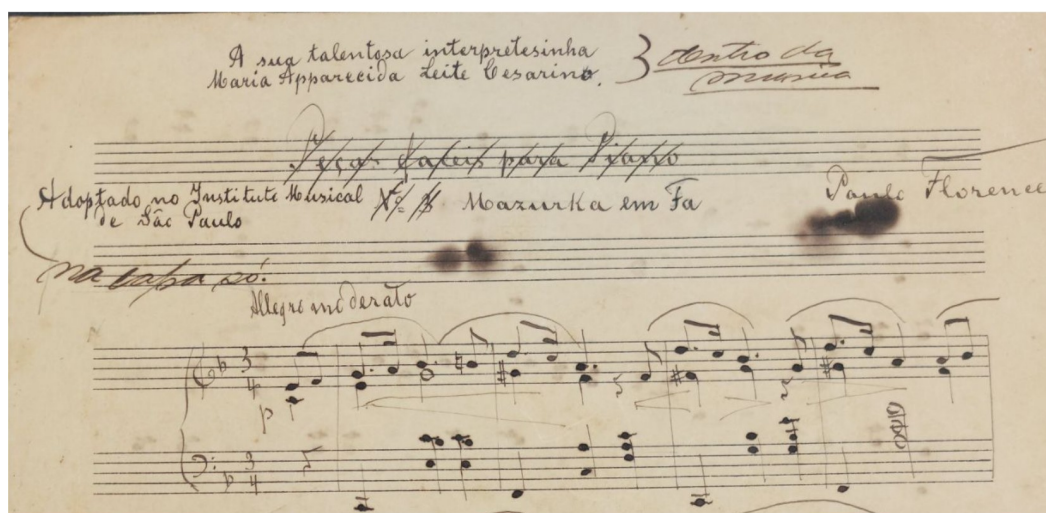 A sua talentosa interpretesinha
Maria Apparecida Leite Cesarino.
dentro da
musica
Peças faceis para Piano
Adoptado no Instituto Musical
de São Paulo
Nº
Mazurka em Fa
Paulo Florence
na capa só.
Allegro moderato
3
4
p
3
4